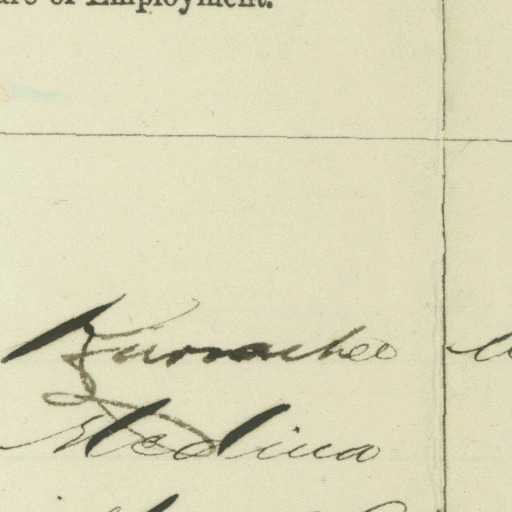 of Employment.
Kurrachee
Medina